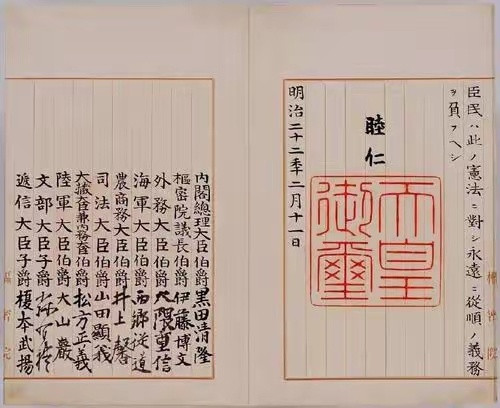 臣民ハ此ノ憲法ニ對シ永遠ニ從順ノ義務
ヲ負フヘシ
睦仁
天皇御璽
明治二十二年二月十一日
樞密院
內閣總理大臣伯爵黑田清隆
樞密院議長伯爵伊藤博文
外務大臣伯爵大隈重信
海軍大臣伯爵西鄉從道
農商務大臣伯爵井上馨
司法大臣伯爵山田顯義
大藏大臣兼內務大臣伯爵松方正義
陸軍大臣伯爵大山巖
文部大臣子爵森有禮
遞信大臣子爵榎本武揚
樞密院